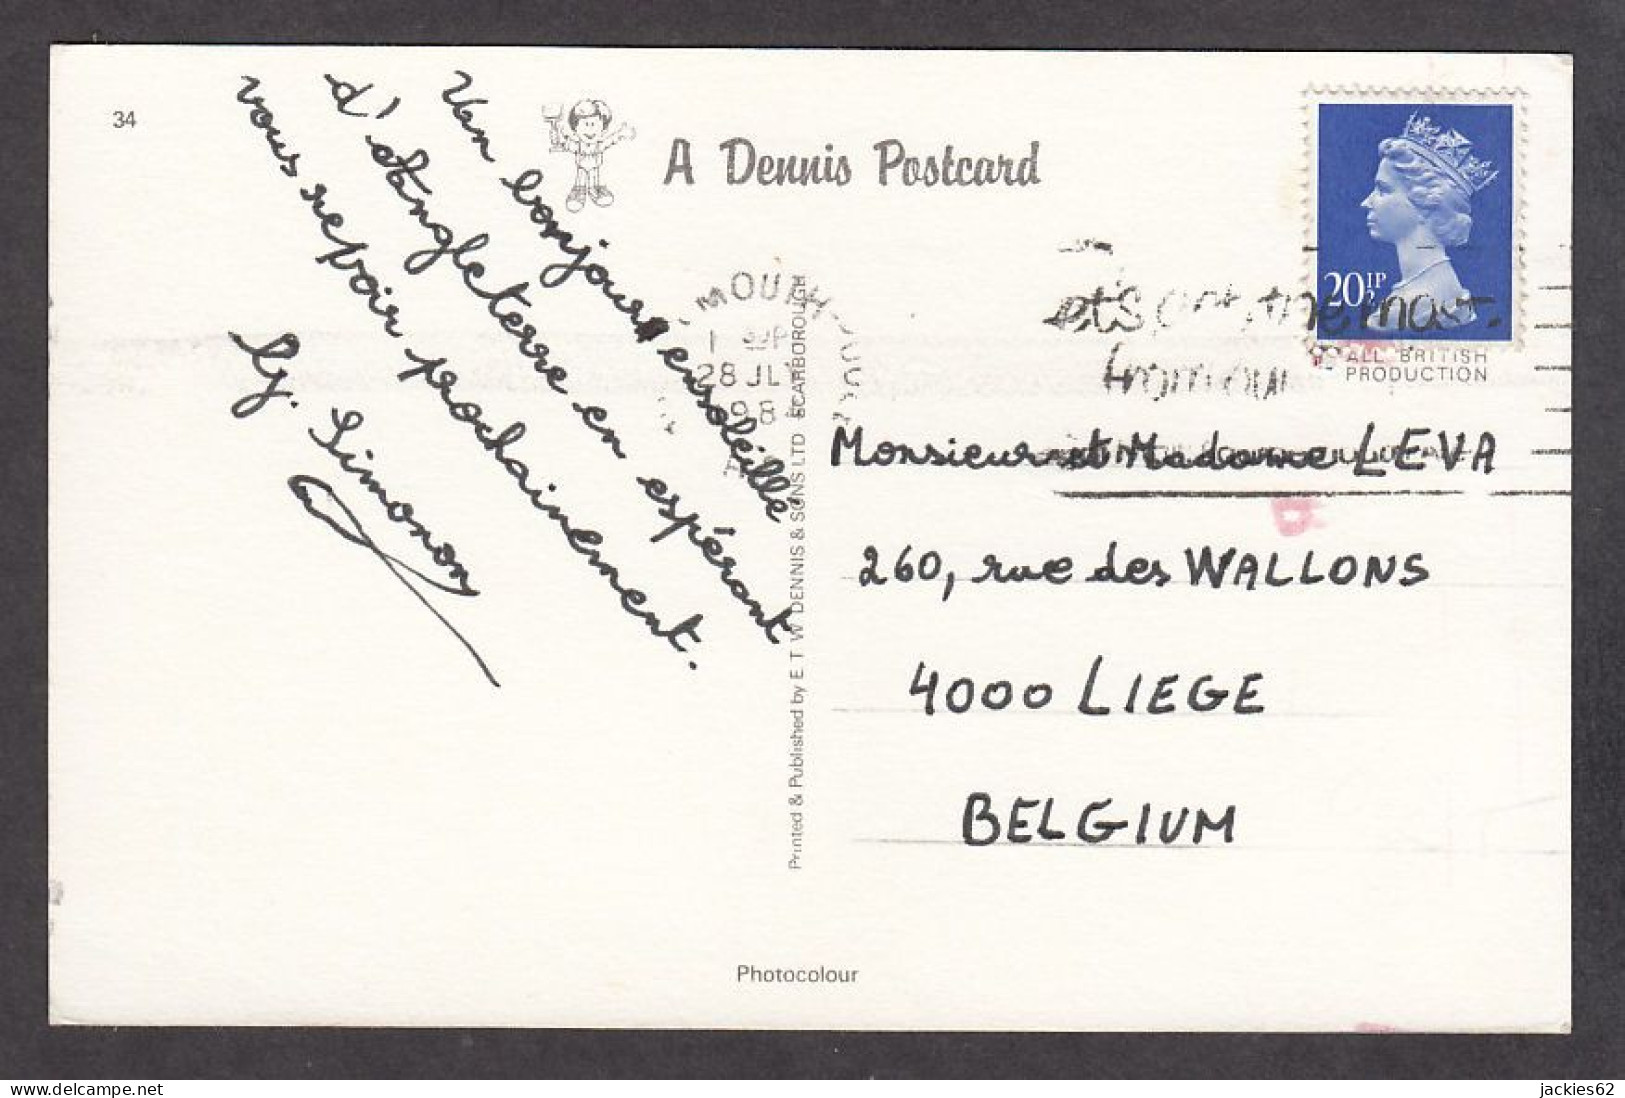 34
A Dennis Postcard
Un bonjour ensoleillé
d'Angleterre en espérant
vous revoir prochainement.
Gj. Simonon
MOUTH-POO
28 JLY
198
20½P
ALL BRITISH
PRODUCTION
Monsieur et Madame LEVA
260, rue des WALLONS
4000 LIEGE
BELGIUM
Printed & Published by E. T. W. DENNIS & SONS LTD SCARBOROUGH
Photocolour
jackies62